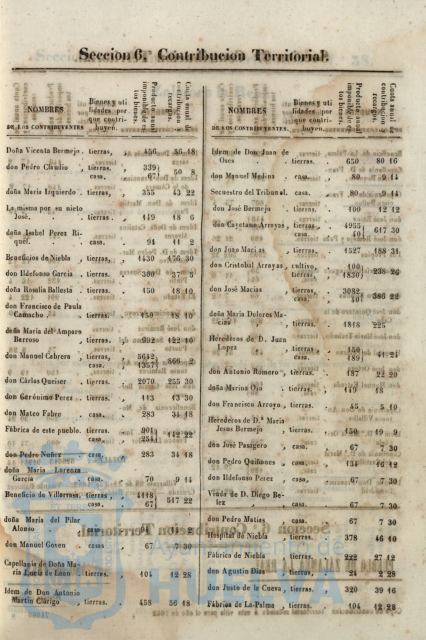 Seccion 6.ª Contribucion Territorial.
NOMBRES
DE LOS CONTRIBUYENTES
Bienes y uti
lidades por
que contri-
buyen.
Producto anual
imponible de
los bienes.
Cuota anual de
contribucion y
recargo.
Doña Vicenta Bermejo. tierras, 456 56 18
don Pedro Claudio , tierras, 339
casa. 67 50 8
doña Maria Izquierdo . tierras. 355 43 22
La misma por su nieto
José. tierras. 149 18 6
doña Isabel Perez Ri-
quel. casa. 94 11 2
Beneficios de Niebla , tierras, 1430 176 30
don Ildefonso Garcia , tierras, 300 37 5
doña Rosalia Ballesta , tierras. 150 18 10
don Francisco de Paula
Camacho . tierras, 150 18 10
doña Maria del Amparo
Barroso tierras, 992 122 10
don Manuel Cabrera tierras, 5642
casa, 1357 866 2
don Cárlos Queiser . tierras. 2070 255 30
don Gerónimo Perez . . tierras. 443 43 30
don Mateo Fabre casa. 283 34 18
Fábrica de este pueblo. tierras. 901
casa, 254 142 22
don Pedro Nuñez casa. 283 34 18
doña Maria Lorenza
Garcia casa. 70 9 14
Beneficio de Villarrasa, tierras, 4418
casa, 67 547 22
doña Maria del Pilar
Alonso
don Manuel Goyen casa. 67 7 30
Capellania de Doña Ma-
ria Lucía de Leon tierras. 104 12 28
Idem de Don Antonio
Martin Clárigo tierras. 458 56 18
NOMBRES
DE LOS CONTRIBUYENTES.
Bienes y uti
lidades por
que contri-
buyen.
Producto anual
imponible de
los bienes.
Cuota anual de
contribucion y
recargo.
Idem de Don Juan de
Oses tierras. 650 80 16
don Manuel Medina casa. 80 9 14
Secuestro del Tribunal. casa. 80 9 14
don José Bermejo tierras, 100 12 12
don Cayetano Arroyas, tierras. 4955
casa 40 617 30
don Joao Macias tierras. 1527 188 31
don Cristobal Arroyas, cultivo, 100
tierras. 1830 238 26
don José Macias tierras. 3082
casa. 40 386 22
doña Maria Dolores Ma-
cias tierras. 1818 225
Herederos de D. Juan
Lopez tierras, 150
casa. 189 41 21
don Antonio Romero , tierras. 187 22 20
doña Marina Ojo tierras. 18
don Francisco Arroyo, tierras. 45 5 10
Herederos de D.ª Maria
Jesus Bermejo tierras. 150 19 9
don José Pasagero casa. 67 7 30
don Pedro Quiñones tierras. 134 16 12
don Ildefonso Perez casa. 67 7 30
Viuda de D. Diego Be-
lez casa. 67 7 30
don Pedro Matias casa. 67 7 30
Hospital de Niebla tierras. 378 46 10
Fábrica de Niebla tierras. 222 27 12
don Agustin Dias tierras. 24 2 28
don Justo de la Cueva, tierras. 320 39 16
Fábrica de La Palma , tierras. 104 12 28
HUELVA